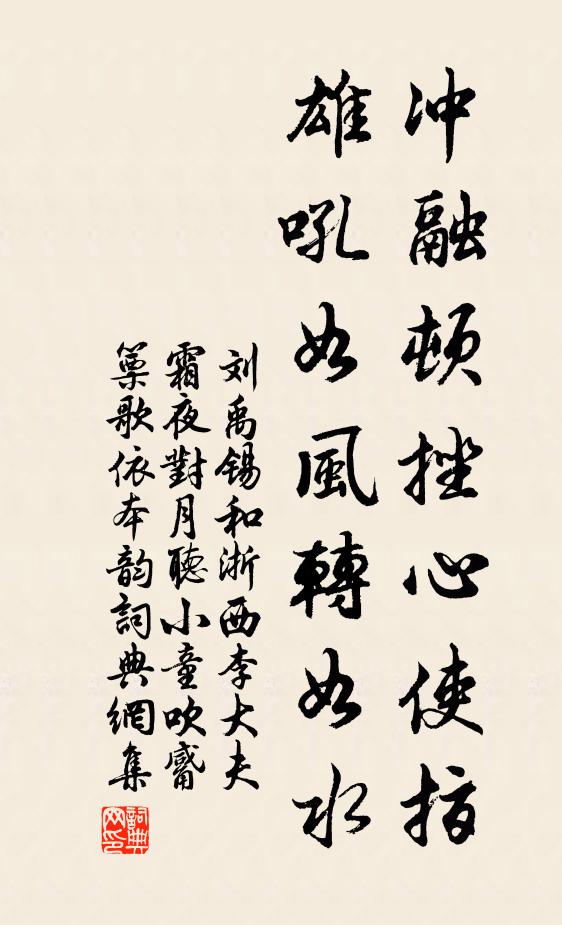 冲融頓挫心使指
雄吼如風轉如水
刘禹锡和浙西李大夫
霜夜對月聽小童吹觱
篥歌依本韵詞典網集
詞典
网印